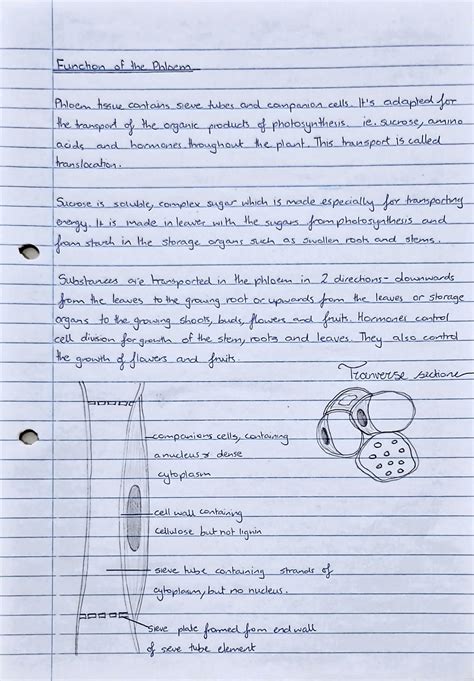 Function of the Phloem
Phloem tissue contains sieve tubes and companion cells. It's adapted for
the transport of the organic products of photosynthesis. ie. sucrose, amino
acids and hormones throughout the plant. This transport is called
translocation.
Sucrose is soluble, complex sugar which is made especially for transporting
energy. It is made in leaves with the sugars from photosynthesis and
from starch in the storage organs such as swollen roots and stems.
Substances are transported in the phloem in 2 directions - downwards
from the leaves to the growing root or upwards from the leaves or storage
organs to the growing shoots, buds, flowers and fruits. Hormones control
cell division for growth of the stem, roots and leaves. They also control
the growth of flowers and fruits.
Tranverse section
companions cells, containing
a nucleus & dense
cytoplasm
cell wall containing
cellulose but not lignin
sieve tube containing strands of
cytoplasm, but no nucleus.
sieve plate formed from end wall
of sieve tube element